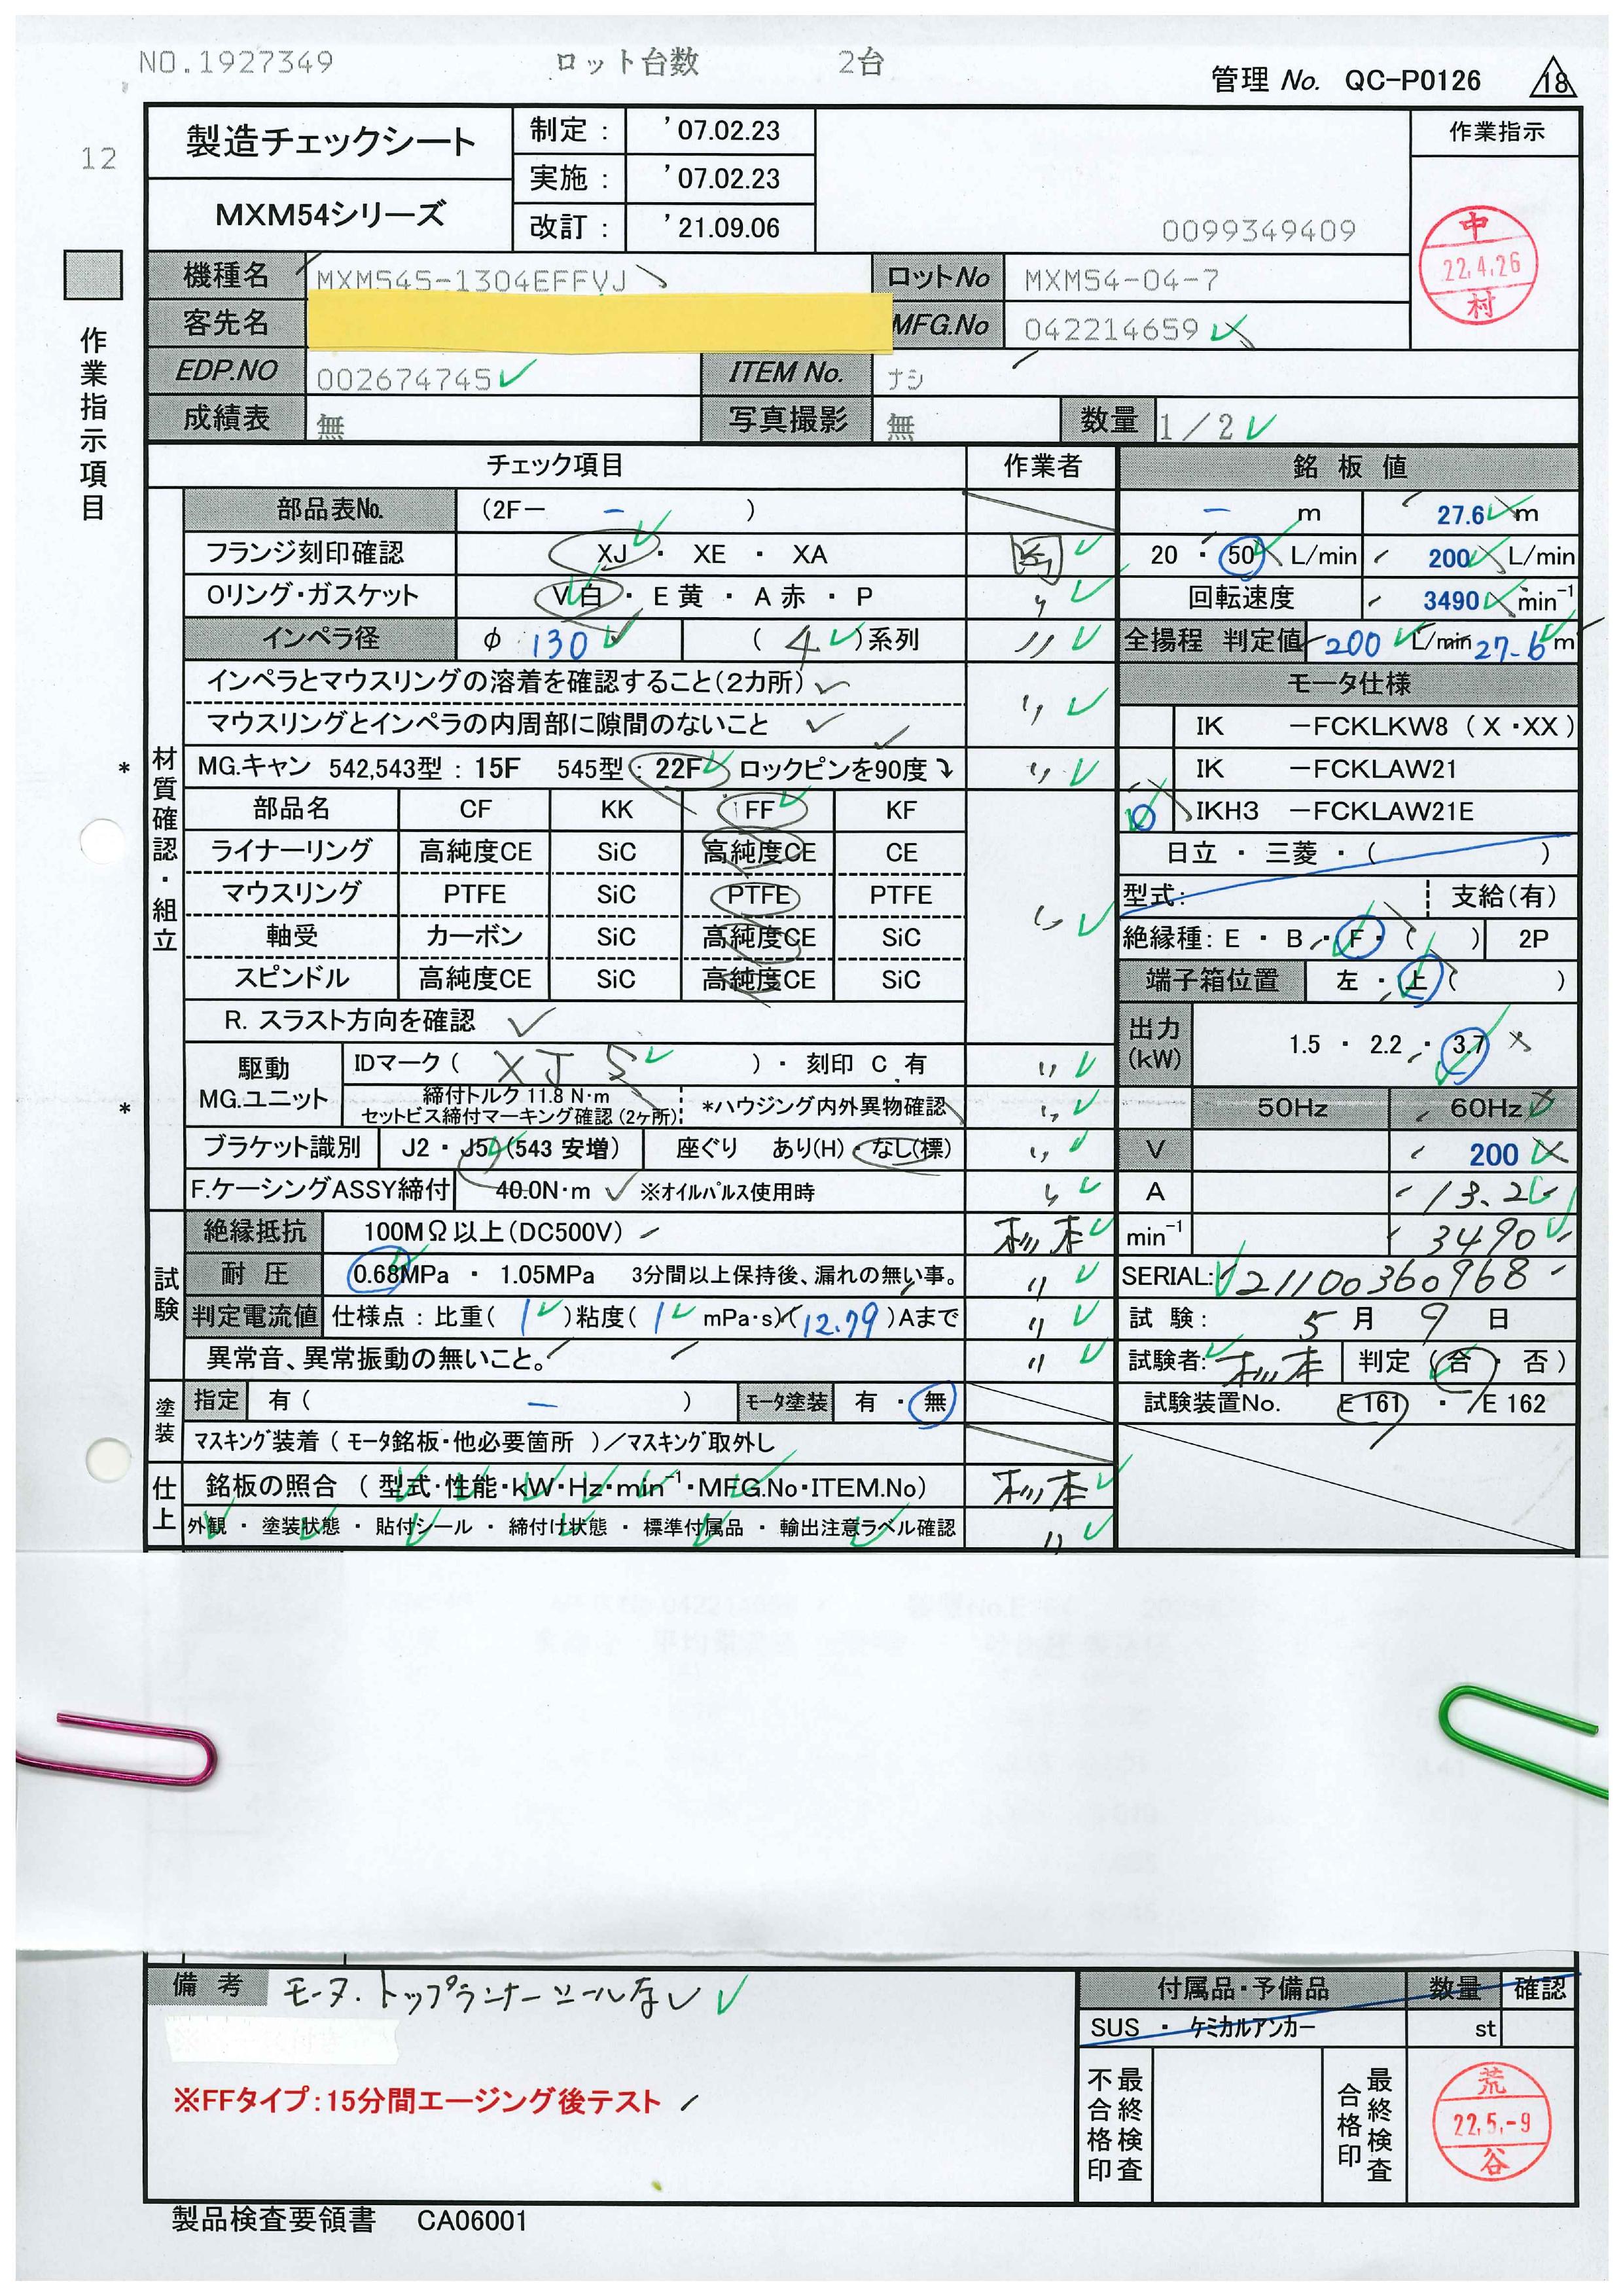 NO.1927349 ロット台数 2台
管理 No. QC-P0126 18
12
製造チェックシート
MXM54シリーズ
制定： '07.02.23
実施： '07.02.23
改訂： '21.09.06
0099349409
作業指示
中
22.4.26
村
作業指示項目
機種名 MXM545-1304EFFVJ ロットNo MXM54-04-7
客先名 MFG.No 042214659
EDP.NO 002674745 ITEM No. ナシ
成績表 無 写真撮影 無 数量 1/2
チェック項目 作業者 銘板値
材質確認・組立
部品表No. (2F－ － )
フランジ刻印確認 XJ ・ XE ・ XA
Oリング・ガスケット V白 ・ E黄 ・ A赤 ・ P
インペラ径 φ 130 ( 4 )系列 〃
インペラとマウスリングの溶着を確認すること(2カ所)
マウスリングとインペラの内周部に隙間のないこと 〃
* MG.キャン 542,543型：15F 545型：22F ロックピンを90度 〃
部品名 CF KK FF KF
ライナーリング 高純度CE SiC 高純度CE CE
マウスリング PTFE SiC PTFE PTFE
軸受 カーボン SiC 高純度CE SiC
スピンドル 高純度CE SiC 高純度CE SiC
R. スラスト方向を確認
駆動MG.ユニット IDマーク ( XJ5 ) ・ 刻印 C 有 〃
* 締付トルク 11.8 N・m
セットビス締付マーキング確認(2ヶ所) *ハウジング内外異物確認 〃
ブラケット識別 J2 ・ J5 (543 安増) 座ぐり あり(H)・なし(標) 〃
F.ケーシングASSY締付 40.0N・m ※オイルパルス使用時 〃
試験
絶縁抵抗 100MΩ以上(DC500V) 松本
耐圧 0.68MPa ・ 1.05MPa 3分間以上保持後、漏れの無い事。 〃
判定電流値 仕様点：比重( 1 )粘度( 1 mPa・s)( 12.79 )Aまで 〃
異常音、異常振動の無いこと。 〃
塗装
指定 有 ( － ) モータ塗装 有 ・ 無
マスキング装着 ( モータ銘板・他必要箇所 )／マスキング取外し
仕上
銘板の照合 ( 型式・性能・kW・Hz・min⁻¹・MFG.No・ITEM.No) 松本
外観 ・ 塗装状態 ・ 貼付シール ・ 締付け状態 ・ 標準付属品 ・ 輸出注意ラベル確認 〃
－ m 27.6 m
20 ・ 50 L/min 200 L/min
回転速度 3490 min⁻¹
全揚程 判定値 200 L/min 27.6 m
モータ仕様
IK －FCKLKW8 ( X ・XX )
IK －FCKLAW21
IKH3 －FCKLAW21E
日立 ・ 三菱 ・ ( )
型式： 支給(有)
絶縁種：E ・ B ・ F ・ ( ) 2P
端子箱位置 左 ・ 上 ( )
出力(kW) 1.5 ・ 2.2 ・ 3.7
50Hz 60Hz
V 200
A 13.2
min⁻¹ 3490
SERIAL: 21100360968
試験： 5月 9日
試験者: 松本 判定 ( 合 ・ 否 )
試験装置No. E 161 ・ E 162
備考 モータ.トップランナーシールなし
※FFタイプ：15分間エージング後テスト
付属品・予備品 数量 確認
SUS ・ ケミカルアンカー st
最終検査不合格印
最終検査合格印
荒
22.5.-9
谷
製品検査要領書 CA06001